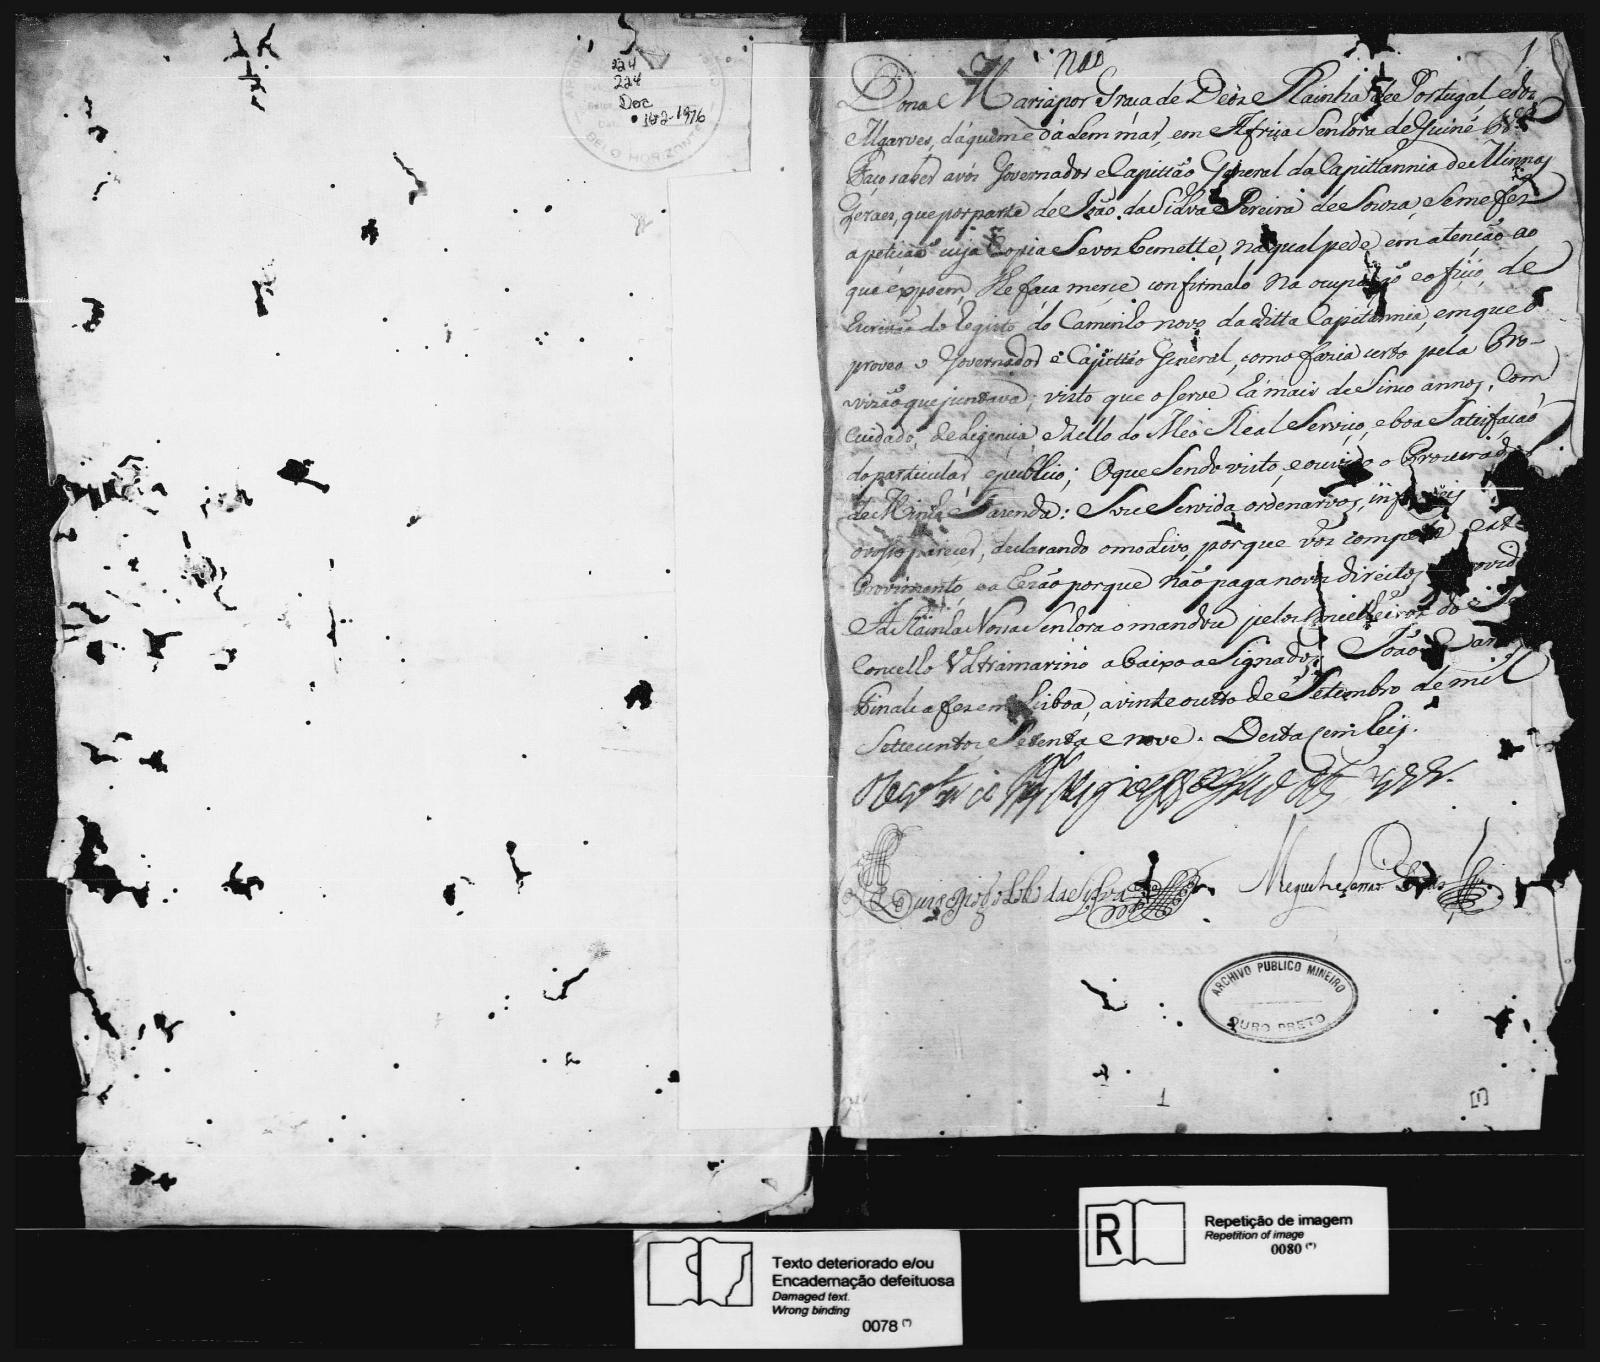 224
224
Doc
162-1976
BELO HORIZONTE
Não
1
Dona Maria por Graça de Deos Rainha de Portugal e dos
Algarves, dáquem e dálem mar, em Africa Senhora de Guiné &c.ª
Faço saber avós Governador e Capittão General da Capittannia de Minnas
Geraes, que por parte de João da Silva Pereira de Souza, Seme fez
a petição cuja Copia Sevos Remette, na qual pede em atenção ao
que expoem, lhe faca merce confirmalo na ocupação e officio, de
Escrivão do Registo do Caminho novo da ditta Capitannia, em que o
proveo o Governador e Capittão General, como fazia certo pela Pro-
vizão que juntava; visto que o serve há mais de Sinco annos, Com
Cuidado, deligencia e Zello do Meo Real Serviço, e boa Satisfação
do particular, e publico; O que Sendo visto, e ouvido o Procurador
de Minha Fazenda: Sou Servida ordenarvos, informeis
o vosso parecer, declarando o motivo, porque vos compete este
Provimento, e a Rezão porque não paga novos direitos o provido
A Rainha Nossa Senhora o mandou pelos Conselheiros do Seu
Concelho Ultramarino abaixo aSignados João
a fez em Lisboa, a vinte outto de Setembro de mil
Setecentos Setenta e nove. Desta cem reis.
Luis Diogo Lobo da Sylva
Miguel Serrão Diniz
ARCHIVO PUBLICO MINEIRO
OURO PRETO
1
[1]
R
Repetição de imagem
Repetition of image
0080 (*)
Texto deteriorado e/ou
Encadernação defeituosa
Damaged text.
Wrong binding
0078 (*)